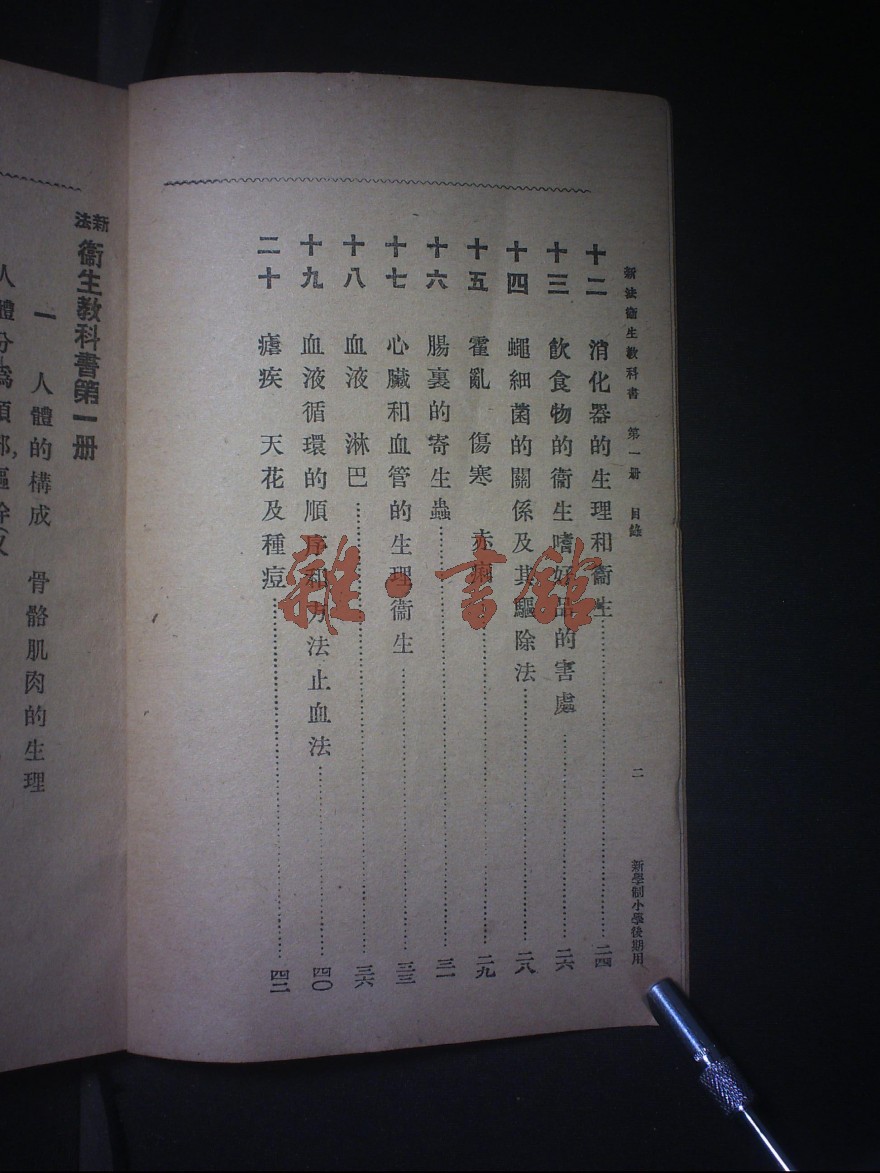 新法衞生敎科書　第一册　目錄　二　新學制小學後期用
十二　消化器的生理和衞生……二四
十三　飲食物的衞生嗜好品的害處……二六
十四　蠅細菌的關係及其驅除法……二八
十五　霍亂　傷寒　赤痢……二九
十六　腸裏的寄生蟲……三一
十七　心臟和血管的生理衞生……三三
十八　血液　淋巴……三六
十九　血液循環的順序和方法止血法……四〇
二十　瘧疾　天花及種痘……四二
雜·書館
新法衞生敎科書第一册
一　人體的構成　骨骼肌肉的生理
人體分爲頭部,軀幹